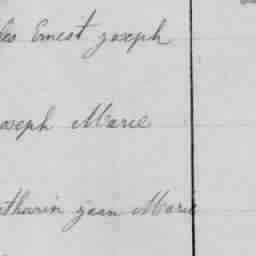 les Ernest joseph
oseph Marie
athurin jean Marie